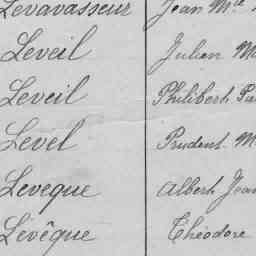 Levavasseur Jean Mie
Leveil Julien M
Leveil Philibert Pa
Level Prudent M
Leveque Albert Jean
Levêque Théodore